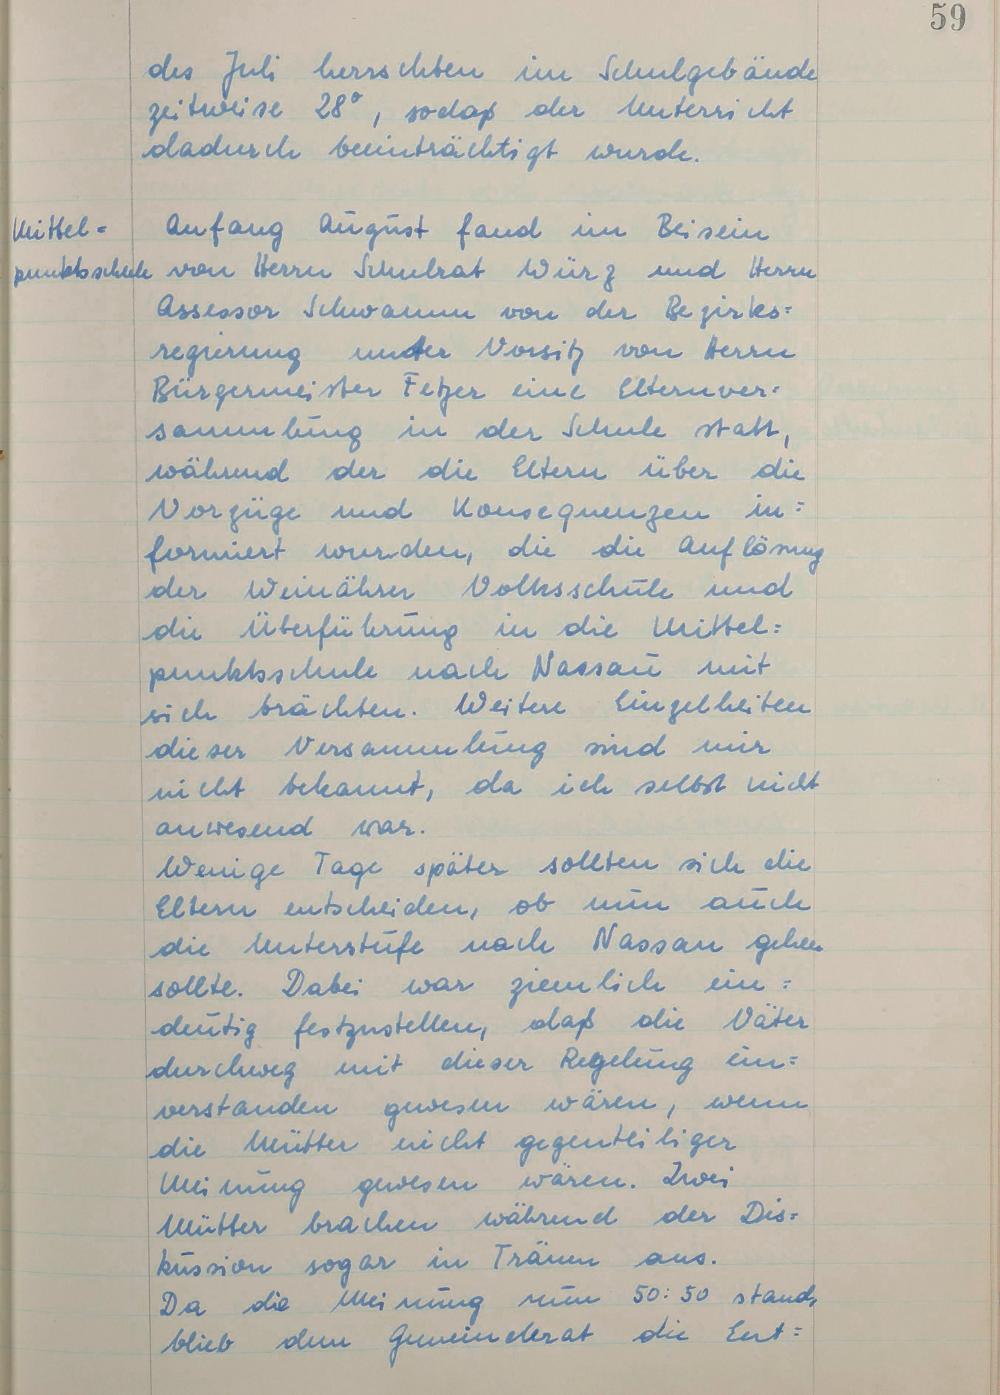 59
des Juli herrschten im Schulgebäude
zeitweise 28°, sodaß der Unterricht
dadurch beeinträchtigt wurde.
Mittel= Anfang August fand im Beisein
punktsschule von Herrn Schulrat Würz und Herrn
Assessor Schwamm von der Bezirks=
regierung unter Vorsitz von Herrn
Bürgermeister Fetzer eine Elternver=
sammlung in der Schule statt,
während der die Eltern über die
Vorzüge und Konsequenzen in=
formiert wurden, die die Auflösung
der Weinährer Volksschule und
die Überführung in die Mittel=
punktsschule nach Nassau mit
sich brächten. Weitere Einzelheiten
dieser Versammlung sind mir
nicht bekannt, da ich selbst nicht
anwesend war.
Wenige Tage später sollten sich die
Eltern entscheiden, ob nun auch
die Unterstufe nach Nassau gehen
sollte. Dabei war ziemlich ein=
deutig festzustellen, daß die Väter
durchweg mit dieser Regelung ein=
verstanden gewesen wären, wenn
die Mütter nicht gegenteiliger
Meinung gewesen wären. Zwei
Mütter brachen während der Dis=
kussion sogar in Tränen aus.
Da die Meinung nun 50:50 stand,
blieb dem Gemeinderat die Ent=